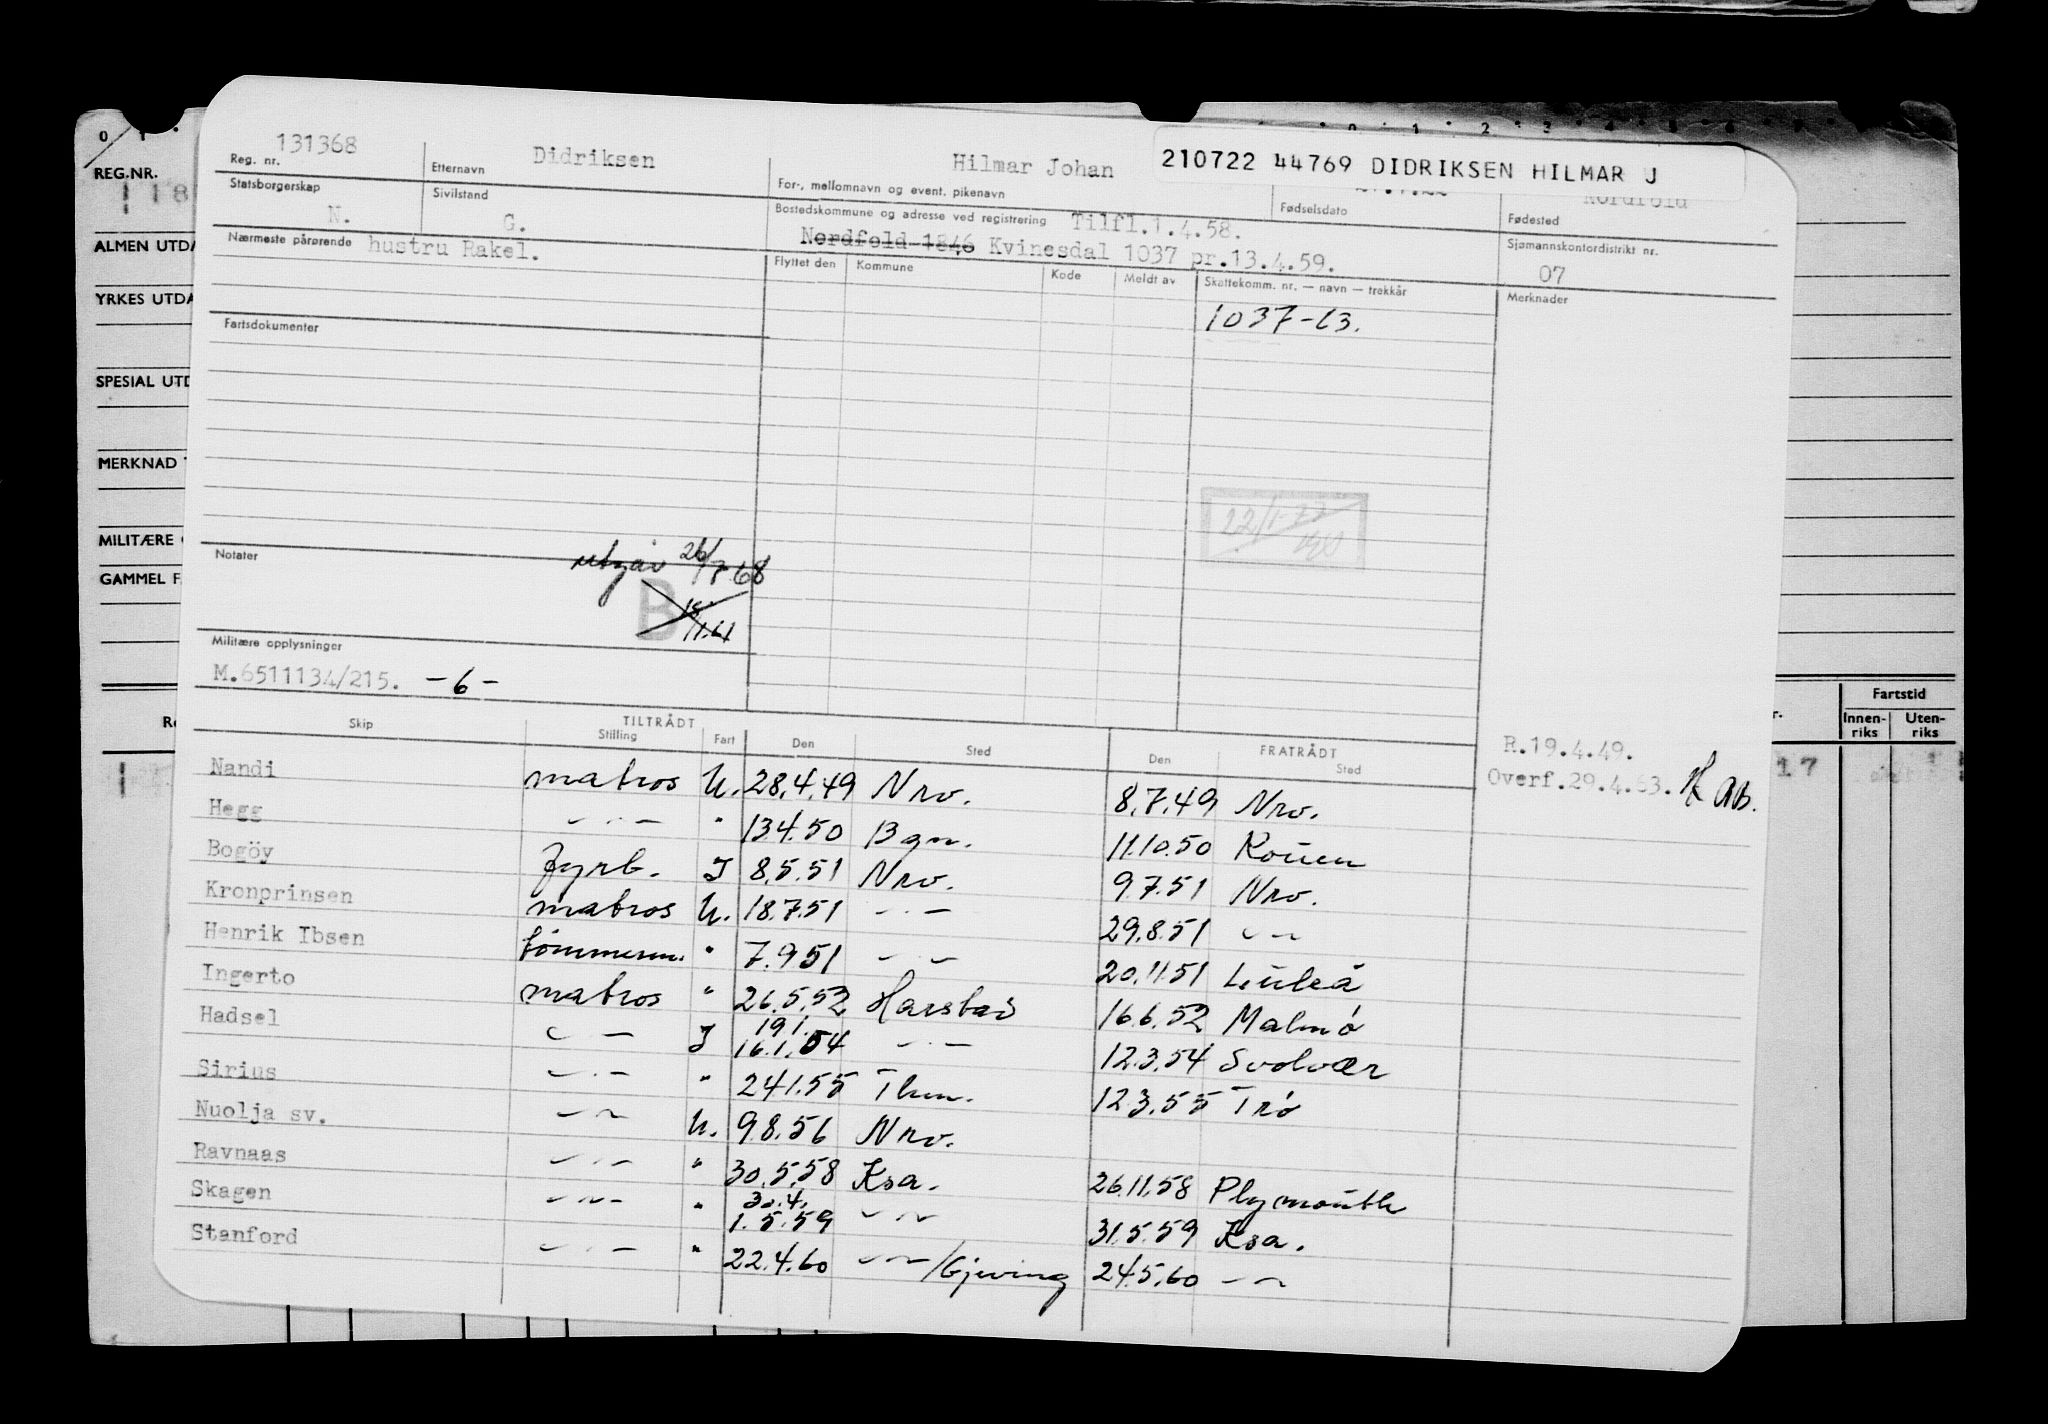 210722 44769 DIDRIKSEN HILMAR J
REG.NR.
ALMEN UTDA
YRKES UTDA
SPESIAL UTD
MERKNAD
MILITÆRE
GAMMEL F
Fartstid
Innen-riks Uten-riks
Reg. nr. 131368 Etternavn Didriksen Hilmar Johan
For-, mellomnavn og event. pikenavn Fødselsdato Fødested
Statsborgerskap N. Sivilstand G. Bostedskommune og adresse ved registrering Tilfl.1.4.58.
Nordfold 1846 Kvinesdal 1037 pr.13.4.59. Sjømannskontordistrikt nr. 07
Nærmeste pårørende hustru Rakel.
Flyttet den Kommune Kode Meldt av Skattekomm. nr. — navn — trekkår Merknader
1037-13.
Fartsdokumenter
Notater utgår 26/7 68
B
Militære opplysninger
M.6511134/215. -6-
TILTRÅDT FRATRÅDT
Skip Stilling Fart Den Sted Den Sted
R.19.4.49.
Overf.29.4.63.
Nandi matros U. 28.4.49 Nrv. 8.7.49 Nrv.
Hegg — " 13.4.50 Bgn. 11.10.50 Rouen
Bogöy fyrb. I 8.5.51 Nrv. 9.7.51 Nrv.
Kronprinsen matros U. 18.7.51 — 29.8.51 —
Henrik Ibsen tömmerm. " 7.9.51 — 20.11.51 Luleå
Ingerto matros " 26.5.52 Harstad 16.6.52 Malmö
Hadsel — I 19.1. 16.1.54 — 12.3.54 Svolvær
Sirius — " 24.1.55 Thm. 12.3.55 Trö
Nuolja sv. — U. 9.8.56 Nrv.
Ravnaas — " 30.5.58 Ksa. 26.11.58 Plymouth
Skagen — " 30.4. 1.5.59 — 31.5.59 Ksa.
Stanford — " 22.4.60 —/Gjeving 24.5.60 —